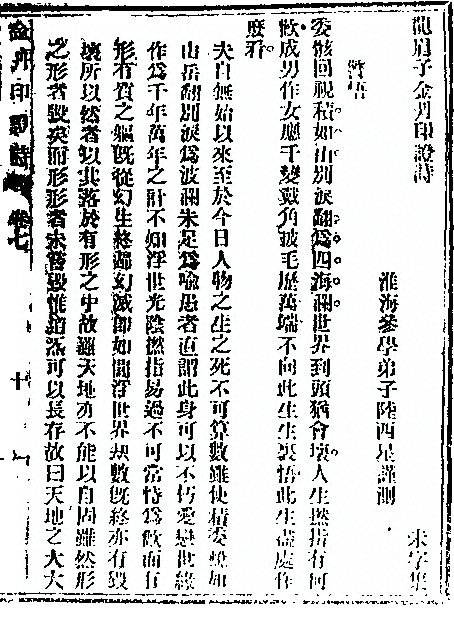 龍眉子金丹印證詩 未字集
淮海參學弟子陸西星謹測
警悟
委骸回視積如山別淚翻為四海瀾世界到頭猶會壞人生撚指有何
歡成男作女應千變戴角披毛歷萬端不向此生生裏悟此生盡處作
麽看
夫自無始以來至於今日人物之生之死不可算數雖使積委燒如
山岳翻別淚為波瀾未足為喻愚者直謂此身可以不朽愛戀世緣
作為千年萬年之計不知浮世光陰撚指易過不可常恃為歡而有
形有質之軀既從幻生終歸幻滅即如閻浮世界刼數既終亦有毀
壞所以然者以其落於有形之中故雖天地亦不能以自固雖然形
之形者毀矣而形形者未嘗毀惟道炁可以長存故曰天地之大大
金丹印證詩 卷七 十